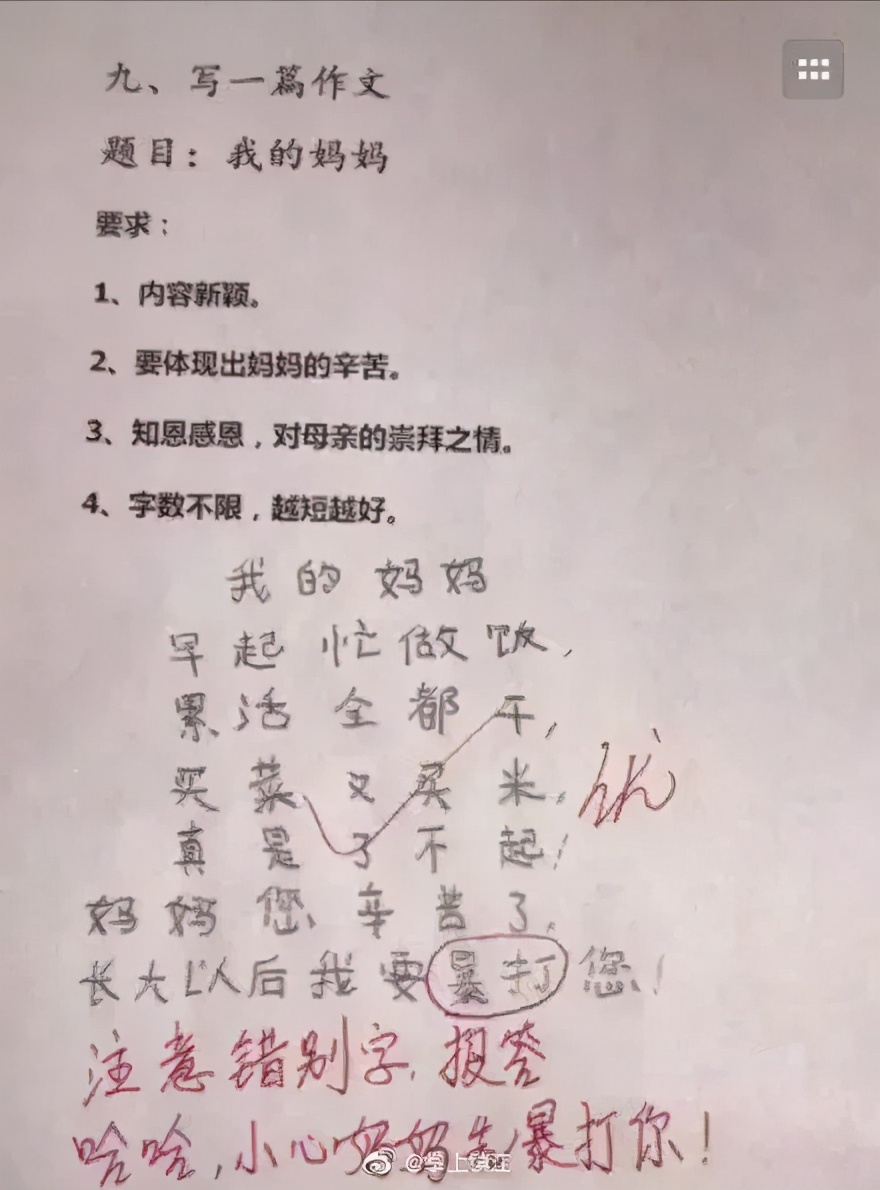 九、写一篇作文
题目：我的妈妈
要求：
1、内容新颖。
2、要体现出妈妈的辛苦。
3、知恩感恩，对母亲的崇拜之情。
4、字数不限，越短越好。
我的妈妈
早起忙做饭，
累活全都干，
买菜又买米，
优
真是了不起！
妈妈您辛昔了，
长大以后我要暴打您！
注意错别字，报答
哈哈，小心妈妈先暴打你！